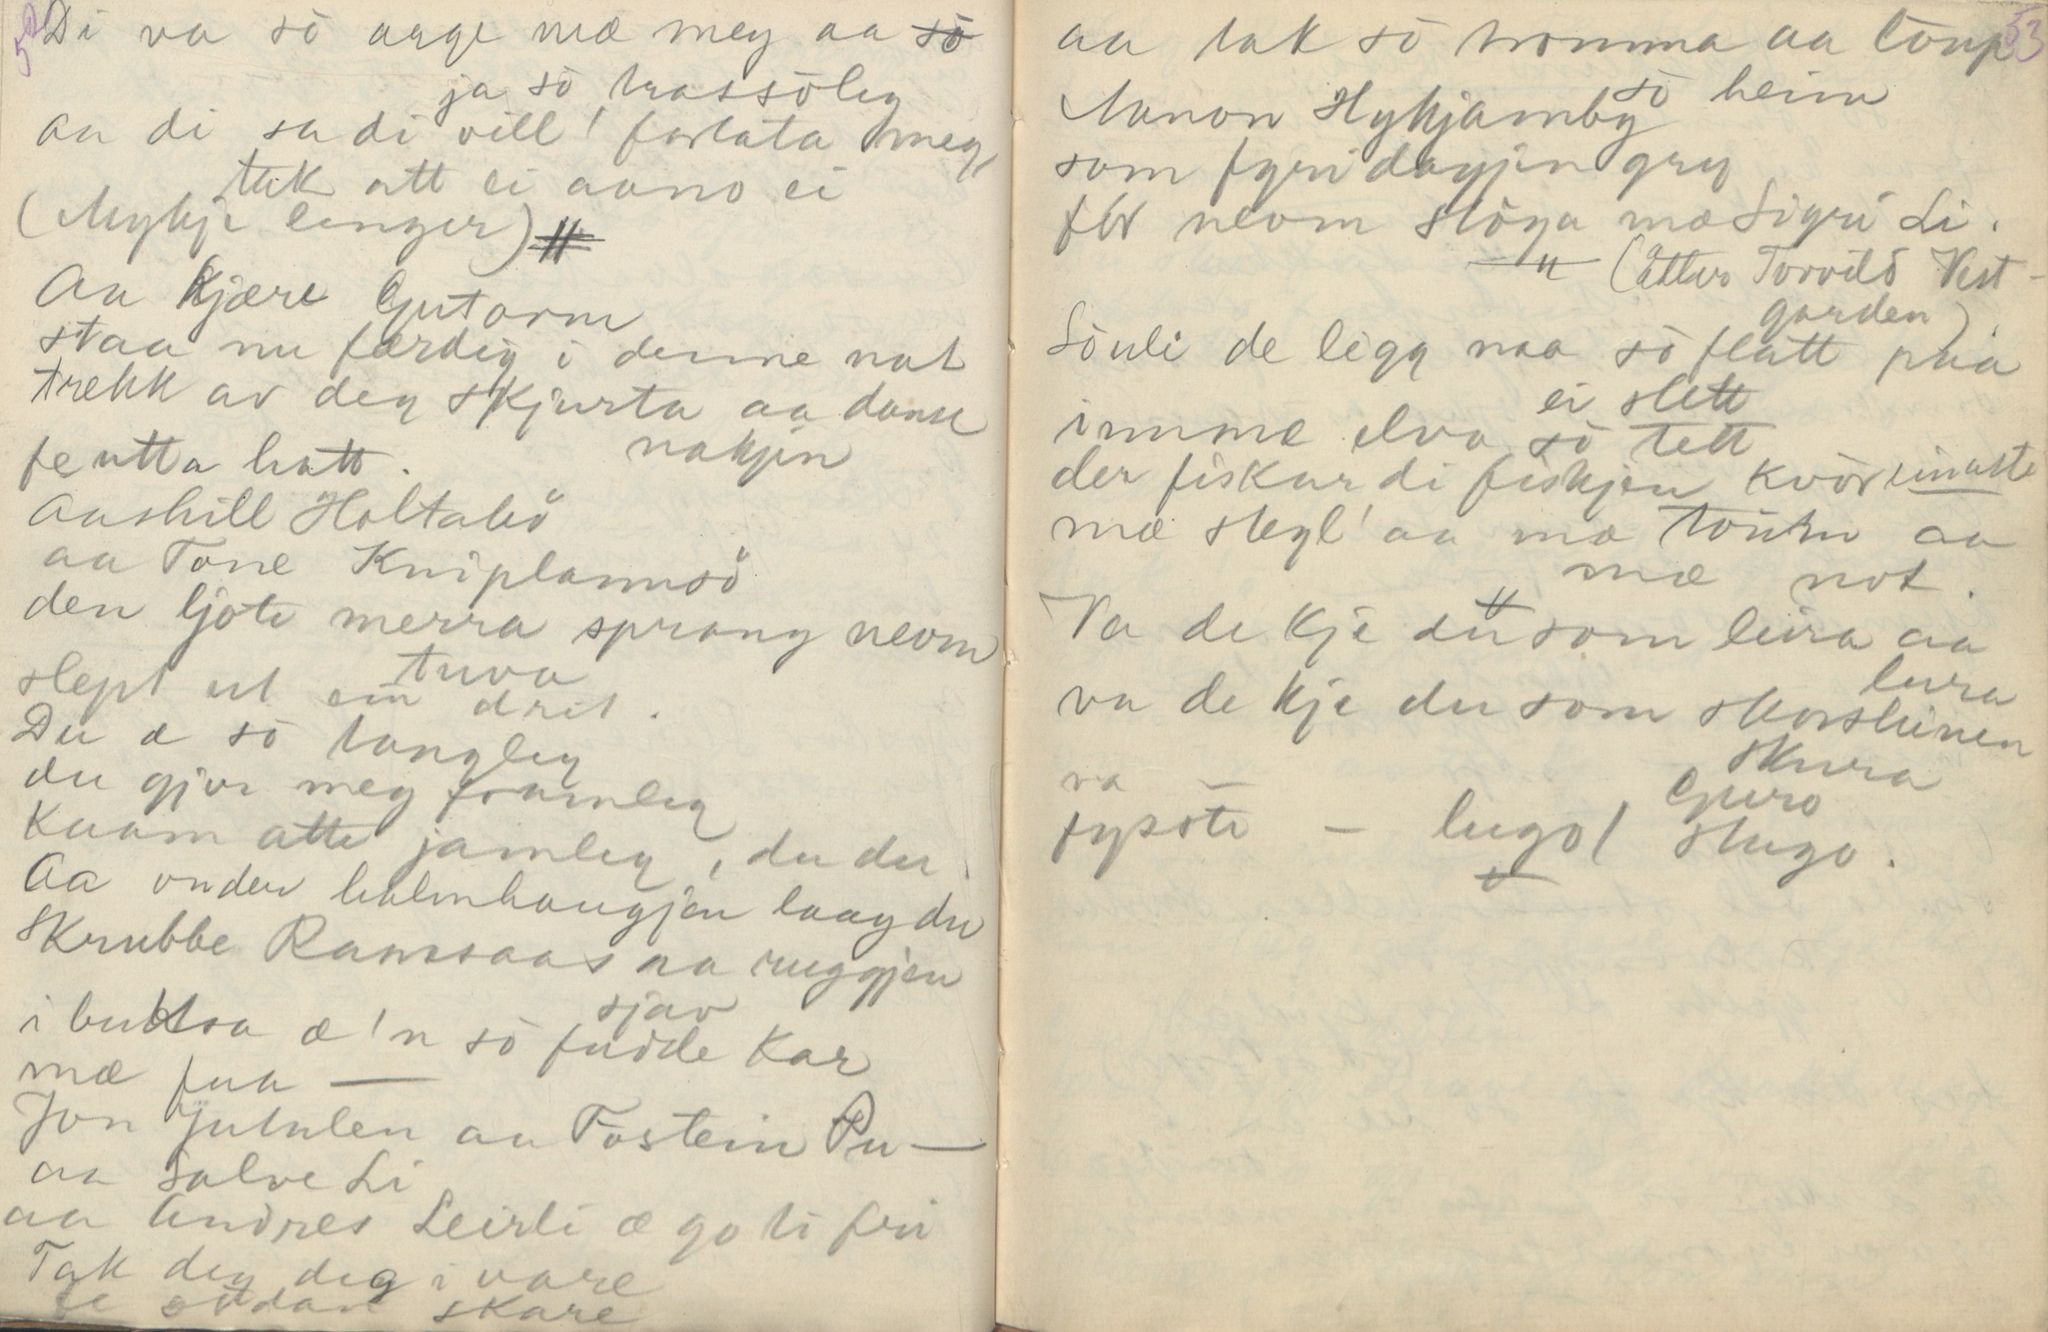 52
Di va sö arge mæ meg aa sö
ja sö trassöleg
aa di sa di vill' forlata meg,
tak att ei aano ei
(Mykje lenger) #
Aa kjære Gutorm
staa nu færdig i denne nat
trekk av deg skjurta aa danse
nakjin
fe utta hatt.
Aashill Holtabö
aa Tone Kniplannsö
den ljote merra sprang neom
tuva
slept ut ein drit.
Du æ sö tangleg
du gjor meg framleg
Kaam atte jamleg, du du
Aa onder halmhaugjen laag du
Skrubbe Ramsaas aa ruggjen
sjav
i buksa æ'n sö fudde Kar
mæ fua —
Jon Jutulen aa Tostein Pu —
aa Salve Li
aa Andres Leirli æ go ti fri
Tak deg deg i vare
fe södan skare
53
aa tak sö tromma aa loup
sö heim
Manon Hykjamby
som fyri dagjin gry
för neom Stöga mæ Sigri Li.
— " — (Etter Torvild Vest-
garden).
Söuli de ligg naa sö flatt paa
ei slett
imme elva sö tett
der fiskar di fiskjen kvör einaste
mæ stegl' aa mæ toine aa
mæ not.
— " —
Va de kje du som leira aa
lura
va de kje du som skorsteinen
skura
va — Guro
fysöte — lugo / Stugo.